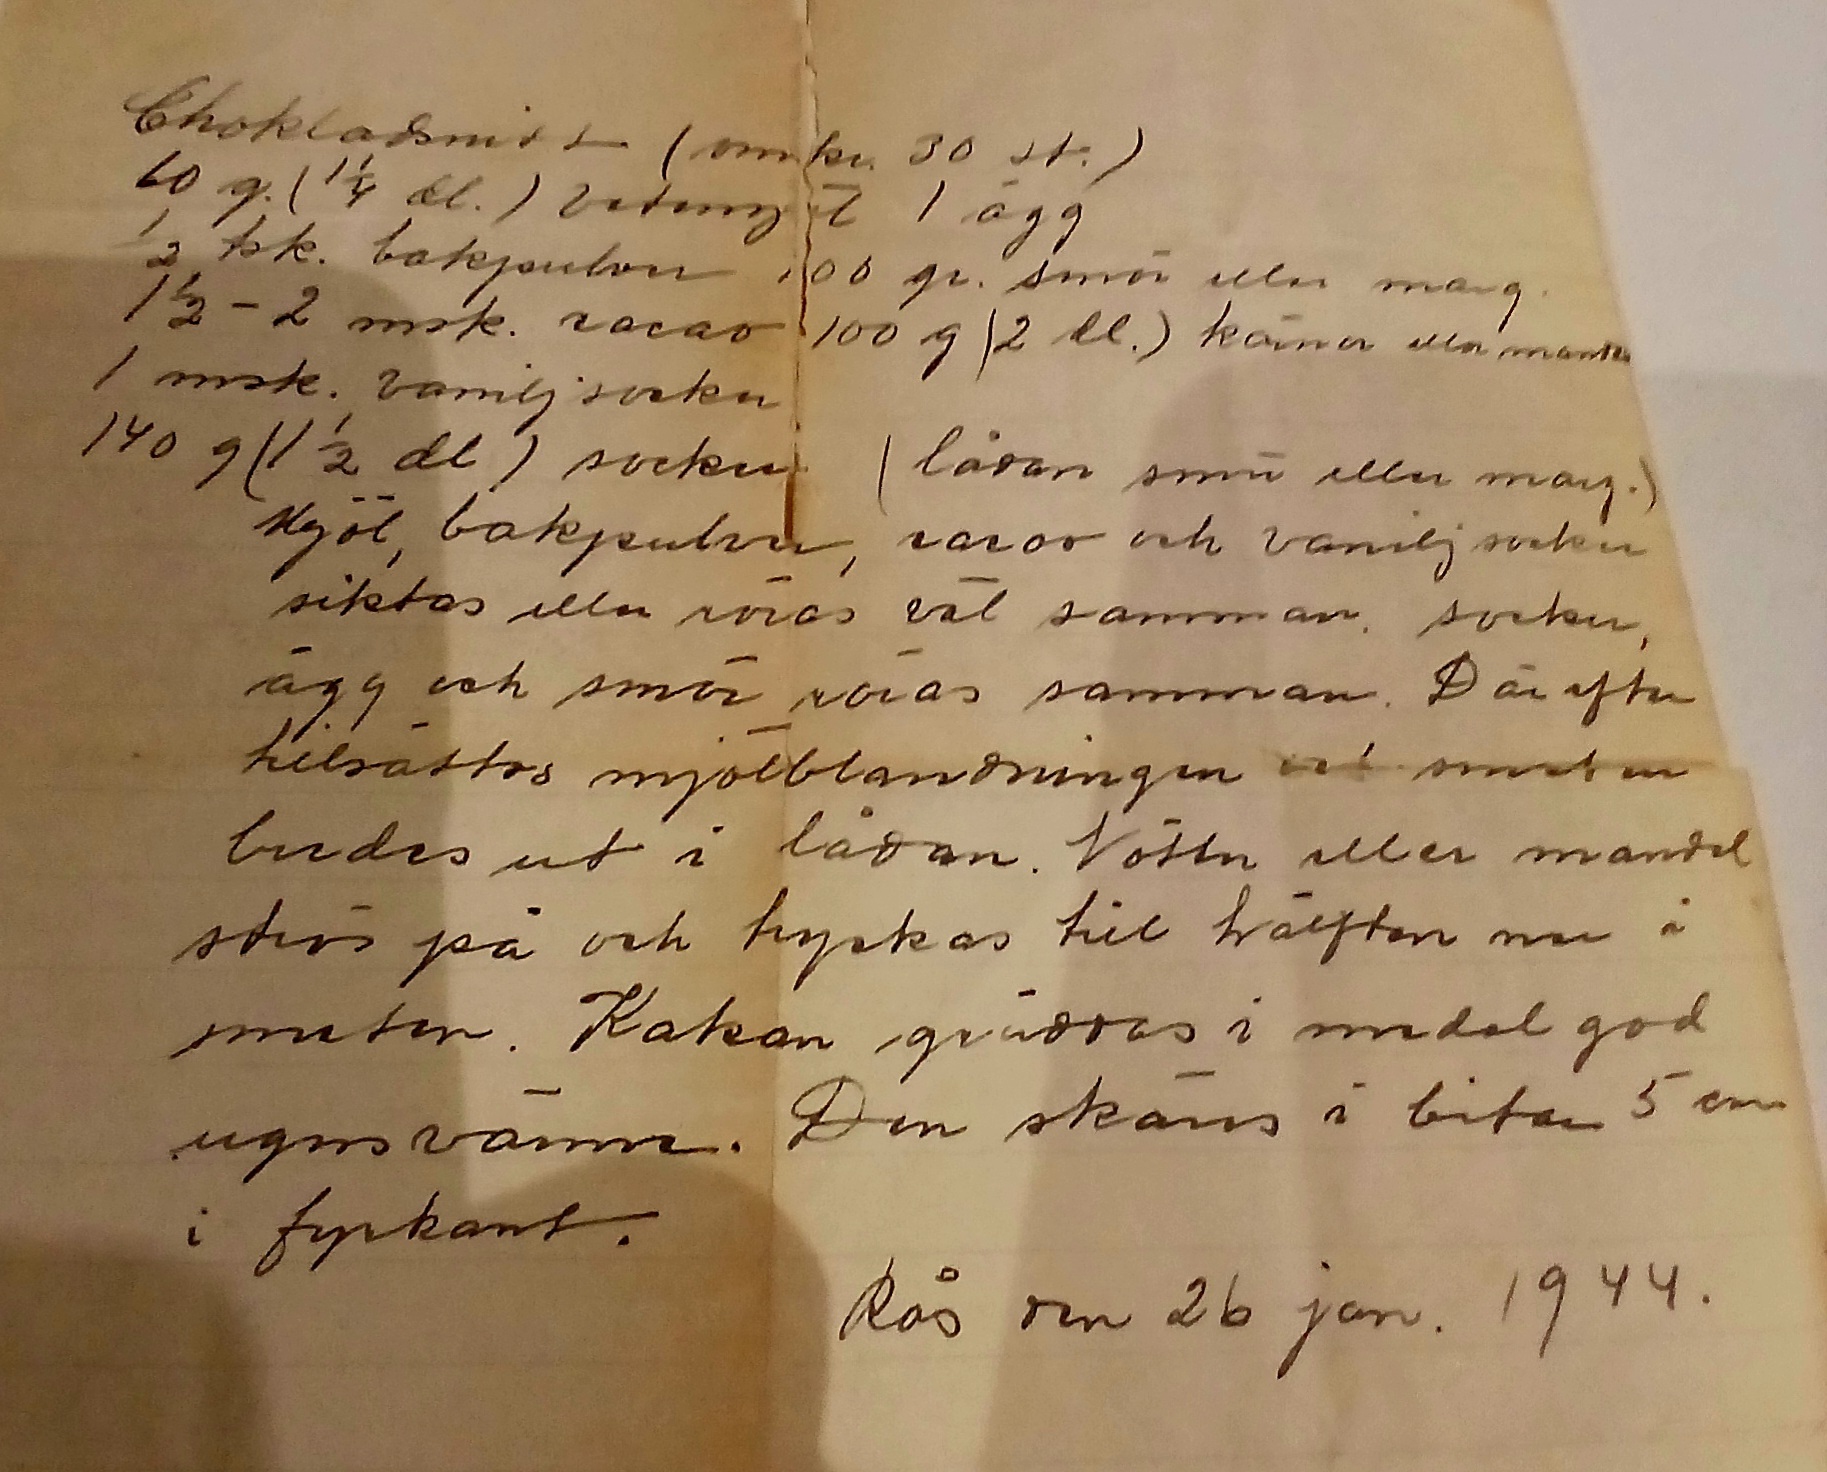 Chokladsnitt (omkr. 30 st.)
60 g. (1 1/4 dl.) vetemjöl 1 ägg
1/2 tsk. bakpulver 100 gr. smör eller marg.
1 1/2 - 2 msk. cacao 100 g (2 dl.) kärnor eller mandel
1 msk. vaniljsocker
140 g (1 1/2 dl) socker (lådan smör eller marg.)
Mjöl, bakpulver, cacao och vaniljsocker
siktas eller röras väl samman. socker,
ägg och smör röras samman. Därefter
tillsättes mjölblandningen och smeten
bredes ut i lådan. Nötter eller mandel
strös på och tryckas till hälften ner i
smeten. Kakan gräddas i medel god
ugnsvärme. Den skäres i bitar 5 cm
i fyrkant.
Rås den 26 jan. 1944.